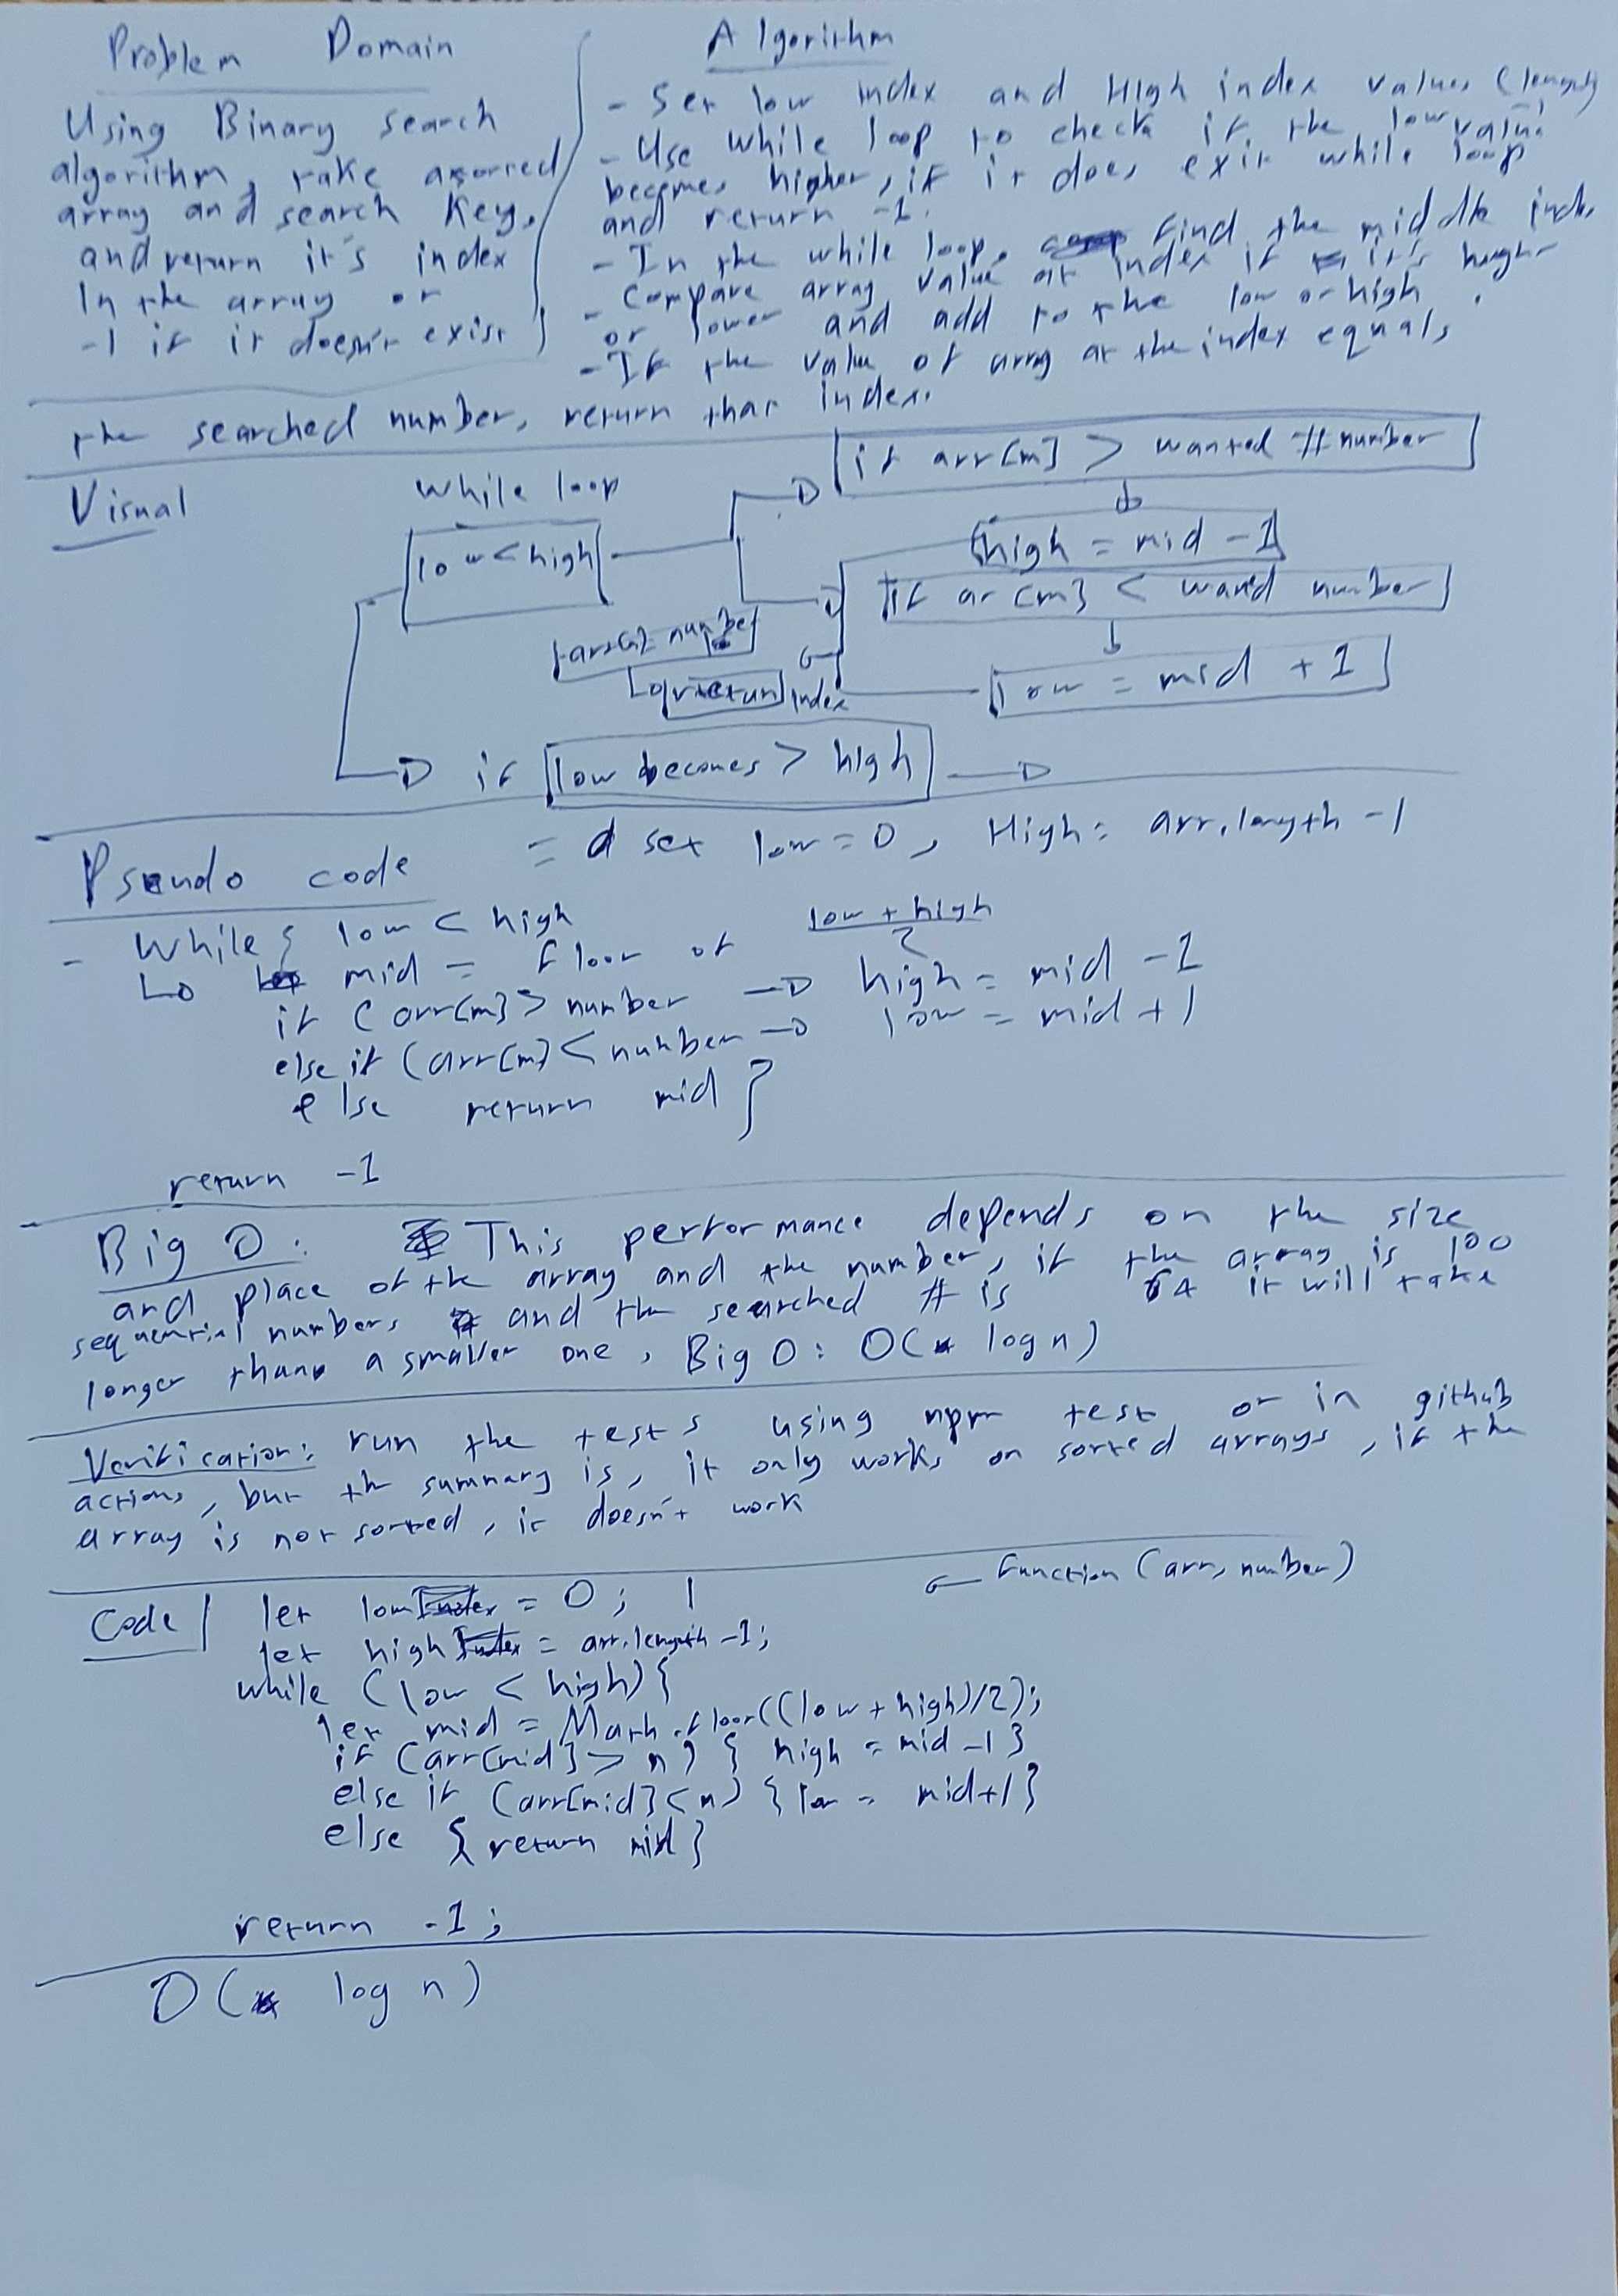 Problem Domain
Using Binary search
algorithm, take a sorted
array and search key,
and return it's index
In the array or
-1 if it doesn't exist
Algorithm
- Set low index and High index values (length)
- Use while loop to check if the low value
becomes higher, if it does exit while loop
and return -1.
- In the while loop, find the middle
- Compare array value at index if it's
or lower and add to the low or high
- If the value of array at the index equals
the searched number, return that index.
Visual
while loop
low < high
if arr[m] > wanted # number
high = mid - 1
if ar[m] < number
low = mid + 1
number
index
if low becomes > high
Pseudo code
= set low = 0, High = arr.length - 1
- While { low < high
mid = floor of low + high / 2
if (arr[m] > number → high = mid - 1
else if (arr[m] < number → low = mid + 1
else return mid }
return -1
Big O: This performance depends on the size
and place of the array and the number, if the array is 100
sequential numbers and the searched # is it will take
longer than a smaller one, Big O: O( log n)
Verification: run the tests using npm test or in github
actions, but the summary is, it only works on sorted arrays, if the
array is not sorted, it doesn't work
Code
← Function (arr, number)
let low = 0;
let high = arr.length -1;
while (low < high) {
let mid = Math.floor((low + high)/2);
if (arr[mid] > n) { high = mid -1 }
else if (arr[mid] < n) { low = mid+1 }
else { return mid }
return -1;
O( log n)